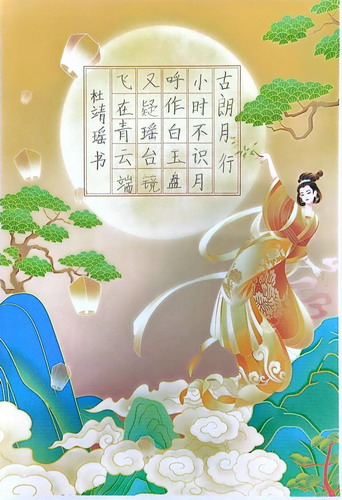 古朗月行
小时不识月
呼作白玉盘
又疑瑶台镜
飞在青云端
杜靖瑶书